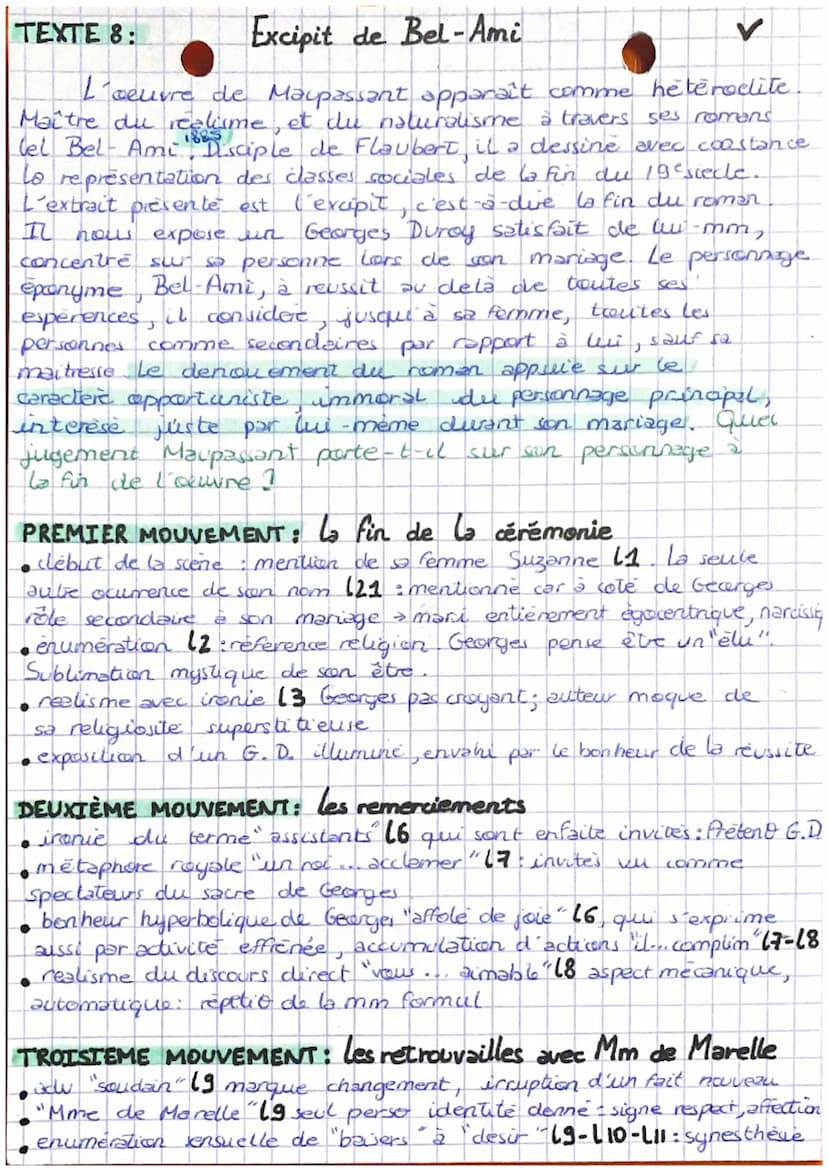 TEXTE 8: Excipit de Bel-Ami
L'oeuvre de Maupassant apparaît comme hétéroclite.
Maître du réalisme, et du naturalisme à travers ses romans
tel Bel-Ami 1885. Disciple de Flaubert, il a dessiné avec constance
la représentation des classes sociales de la fin du 19e siècle.
L'extrait présenté est l'excipit, c'est-à-dire la fin du roman.
Il nous expose un Georges Duroy satisfait de lui-mm,
concentré sur sa personne lors de son mariage. Le personnage
éponyme, Bel-Ami, à réussit au delà de toutes ses
espérences, il considère, jusqu'à sa femme, toutes les
personnes comme secondaires par rapport à lui, sauf sa
maitresse. Le dénouement du roman appuie sur le
caractère opportuniste, immoral du personnage principal,
intéresé juste par lui-même durant son mariage. Quel
jugement Maupassant porte-t-il sur son personnage à
la fin de l'oeuvre?
PREMIER MOUVEMENT: la fin de la cérémonie
• début de la scène : mention de sa femme Suzanne L1. La seule
autre ocurrence de son nom L21 : mentionné car à coté de Georges
rôle secondaire à son mariage → mari entièrement égocentrique, narcissiq
• énumération L2 : référence religion. Georges pense être un "élu".
Sublimation mystique de son être.
• réalisme avec ironie L3 Georges pas croyant; auteur moque de
sa religiosité superstitieuse
• exposition d'un G.D. illuminé, envahi par le bonheur de la réussite
DEUXIÈME MOUVEMENT: les remerciements
• ironie du terme "assistants" L6 qui sont enfaite invités : G.D
• métaphore royale "un roi ... acclamer" L7 : invités vu comme
spectateurs du sacre de Georges
• bonheur hyperbolique de Georges "affolé de joie" L6, qui s'exprime
aussi par activité effrénée, accumulation d'actions "il...complim" L7-L8
• réalisme du discours direct "vous ... aimable" L8 aspect mécanique,
automatique: répétit° de la mm formul
TROISIEME MOUVEMENT: les retrouvailles avec Mm de Marelle
• adv "soudain" L9 marque changement, irruption d'un fait nouveau
• "Mme de Marelle" L9 seul perso identité donné : signe respect, affection
• énumération sensuelle de "baisers" à "désir" L9-L10-L11 : synesthésie